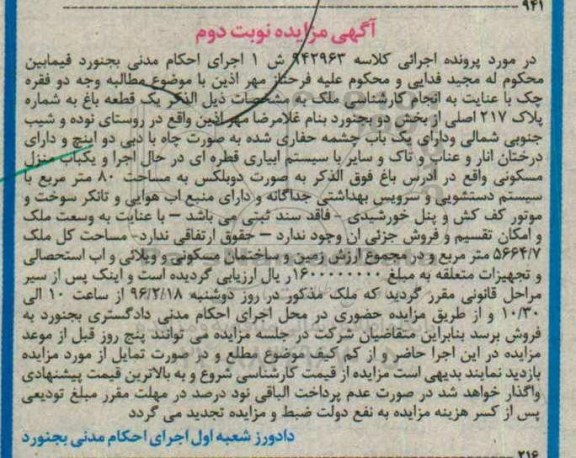 ۹۴۱
آگهی مزایده نوبت دوم
در مورد پرونده اجرائی کلاسه ۹۴۲۹۶۳ ش ۱ اجرای احکام مدنی بجنورد فیمابین
محکوم له مجید فدایی و محکوم علیه فرحناز مهر آذین با موضوع مطالبه وجه دو فقره
چک با عنایت به انجام کارشناسی ملک به مشخصات ذیل الذکر یک قطعه باغ به شماره
پلاک ۲۱۷ اصلی از بخش دو بجنورد بنام غلامرضا مهر آذین واقع در روستای نوده و شیب
جنوبی شمالی ودارای یک باب چشمه حفاری شده به صورت چاه با دبی دو اینچ و دارای
درختان انار و عناب و تاک و سایر با سیستم آبیاری قطره ای در حال اجرا و یکباب منزل
مسکونی واقع در آدرس باغ فوق الذکر به صورت دوبلکس به مساحت ۸۰ متر مربع با
سیستم دستشویی و سرویس بهداشتی جداگانه و دارای منبع اب هوایی و تانکر سوخت و
موتور کف کش و پنل خورشیدی - فاقد سند ثبتی می باشد – با عنایت به وسعت ملک
و امکان تقسیم و فروش جزئی ان وجود ندارد – حقوق ارتفاقی ندارد- مساحت کل ملک
۵۶۶۴/۷ متر مربع و در مجموع ارزش زمین و ساختمان مسکونی و ویلائی و اب استحصالی
و تجهیزات متعلقه به مبلغ ۱۶۰۰۰۰۰۰۰۰ر یال ارزیابی گردیده است و اینک پس از سیر
مراحل قانونی مقرر گردید که ملک مذکور در روز دوشنبه ۹۶/۲/۱۸ از ساعت ۱۰ الی
۱۰/۳۰ و از طریق مزایده حضوری در محل اجرای احکام مدنی دادگستری بجنورد به
فروش برسد بنابراین متقاضیان شرکت در جلسه مزایده می توانند پنج روز قبل از موعد
مزایده در این اجرا حاضر و از کم کیف موضوع مطلع و در صورت تمایل از مورد مزایده
بازدید نمایند بدیهی است مزایده از قیمت کارشناسی شروع و به بالاترین قیمت پیشنهادی
واگذار خواهد شد در صورت عدم پرداخت الباقی نود درصد در مهلت مقرر مبلغ تودیعی
پس از کسر هزینه مزایده به نفع دولت ضبط و مزایده تجدید می گردد
دادورز شعبه اول اجرای احکام مدنی بجنورد
۲۱۶